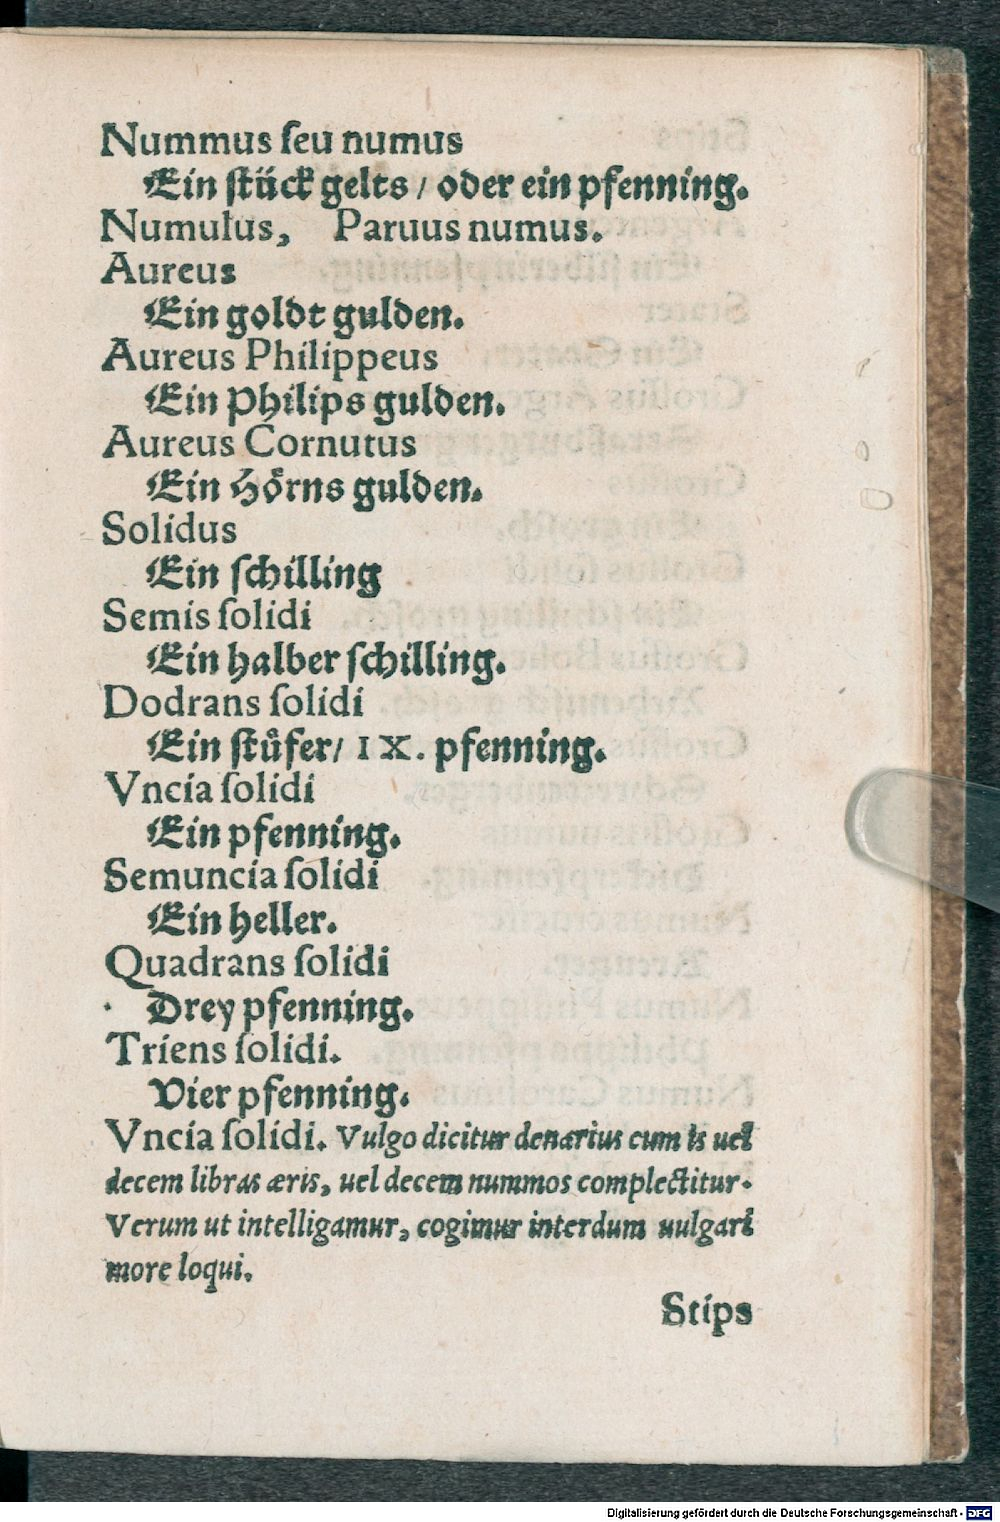 Nummus ſeu numus
Ein ſtück gelts / oder ein pfenning.
Numulus, Paruus numus.
Aureus
Ein goldt gulden.
Aureus Philippeus
Ein Philips gulden.
Aureus Cornutus
Ein Hoͤrns gulden.
Solidus
Ein ſchilling
Semis ſolidi
Ein halber ſchilling.
Dodrans ſolidi
Ein ſtuͤfer/ IX. pfenning.
Vncia ſolidi
Ein pfenning.
Semuncia ſolidi
Ein heller.
Quadrans ſolidi
Drey pfenning.
Triens ſolidi.
Vier pfenning.
Vncia ſolidi. Vulgo dicitur denarius cum is uel
decem libras æris, uel decem nummos complectitur.
Verum ut intelligamur, cogimur interdum uulgari
more loqui.
Stips
Digitalisierung gefördert durch die Deutsche Forschungsgemeinschaft - DFG